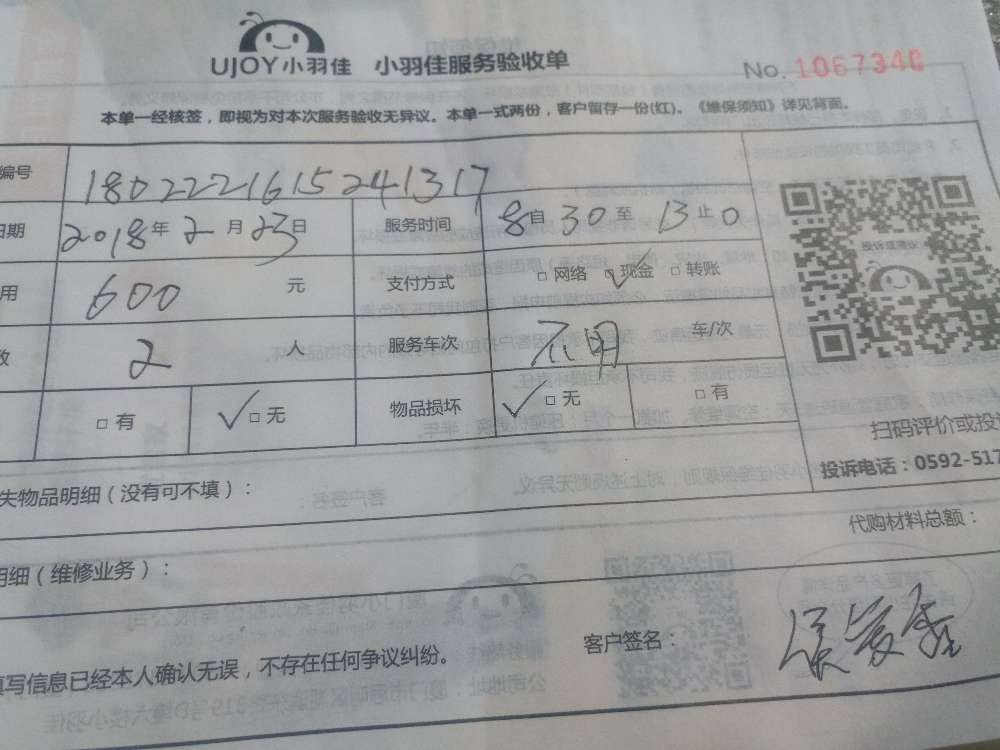 UJOY小羽佳 小羽佳服务验收单 No. 1067340
本单一经核签，即视为对本次服务验收无异议。本单一式两份，客户留存一份(红)。《维保须知》详见背面。
编号 180222161524131​7
日期 2018年2月23日 服务时间 8自30至13止0
用 600 元 支付方式 □网络 ☑现金 □转账
数 2 人 服务车次 不明 车/次
□有 ✓□无 物品损坏 ✓□无 □有
投诉或建议
扫码评价或投
投诉电话：0592-517
失物品明细（没有可不填）：
代购材料总额：
明细（维修业务）：
填写信息已经本人确认无误，不存在任何争议纠纷。 客户签名：